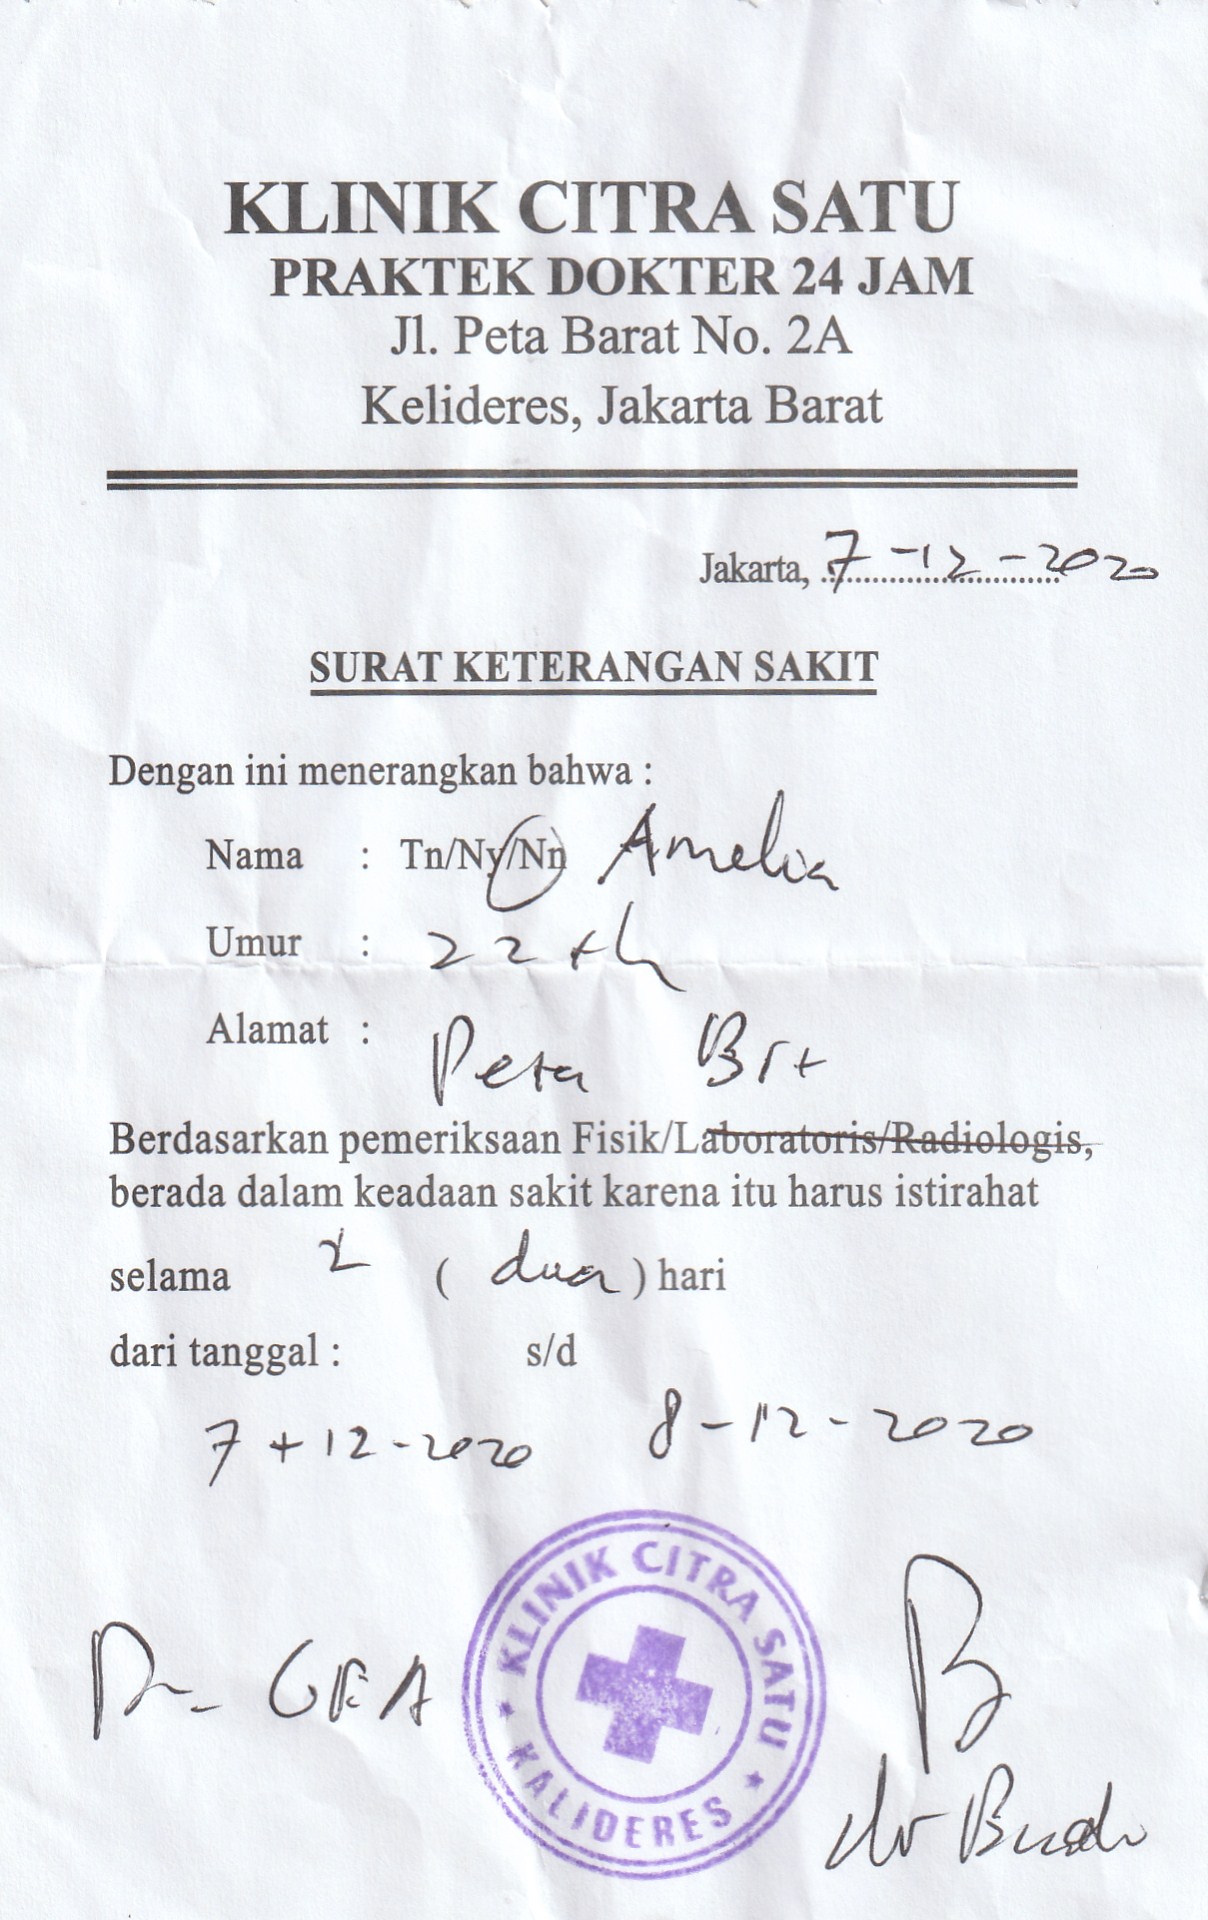 KLINIK CITRA SATU
PRAKTEK DOKTER 24 JAM
Jl. Peta Barat No. 2A
Kelideres, Jakarta Barat
Jakarta, 7-12-2020
SURAT KETERANGAN SAKIT
Dengan ini menerangkan bahwa :
Nama : Tn/Ny/Nn Amelia
Umur : 22 th
Alamat : Peta Brt
Berdasarkan pemeriksaan Fisik/Laboratoris/Radiologis,
berada dalam keadaan sakit karena itu harus istirahat
selama 2 ( dua ) hari
dari tanggal : s/d
7-12-2020 8-12-2020
KLINIK CITRA SATU
KALIDERES
GEA
dr Budi